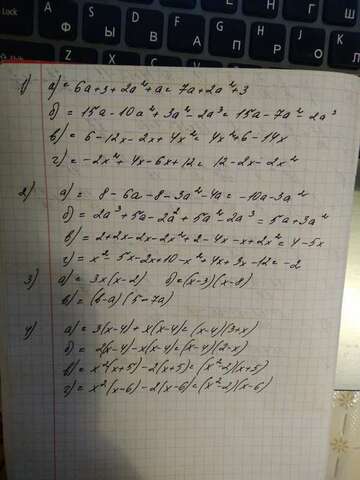 1) а) = 6a+3+2a²+a = 7a+2a²+3
б) = 15a-10a²+3a²-2a³ = 15a-7a²-2a³
в) = 6-12x-2x+4x² = 4x²+6-14x
г) = -2x²+4x-6x+12 = 12-2x-2x²
2) а) = 8-6a-8-3a²-4a = -10a-3a²
б) = 2a³+5a-2a²+5a²-2a³ = 5a+3a²
в) = 2+2x-2x-2x²+2-4x-x+2x² = 4-5x
г) = x² 5x-2x+10-x²+4x+3x-12 = -2
3) а) = 3x(x-2) б) = (x-3)(x-8)
в) = (b-a)(5-7a)
4) а) = 3(x-4)+x(x-4) = (x-4)(3+x)
б) = 2(x-4)-x(x-4) = (x-4)(2-x)
в) = x²(x+5)-2(x+5) = (x²-2)(x+5)
г) = x²(x-6)-2(x-6) = (x²-2)(x-6)